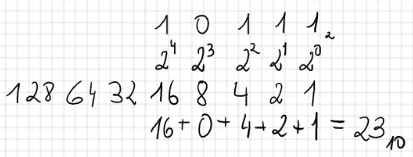 1 0 1 1 1₂
2⁴ 2³ 2² 2¹ 2⁰
128 64 32 16 8 4 2 1
16+0+4+2+1=23₁₀